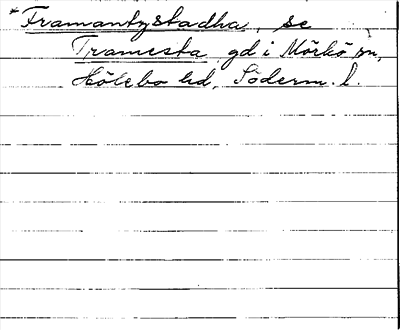 *Framantystadha, se
Tramesta gd i Mörkö sn,
Hölebo hd, Söderm. l.